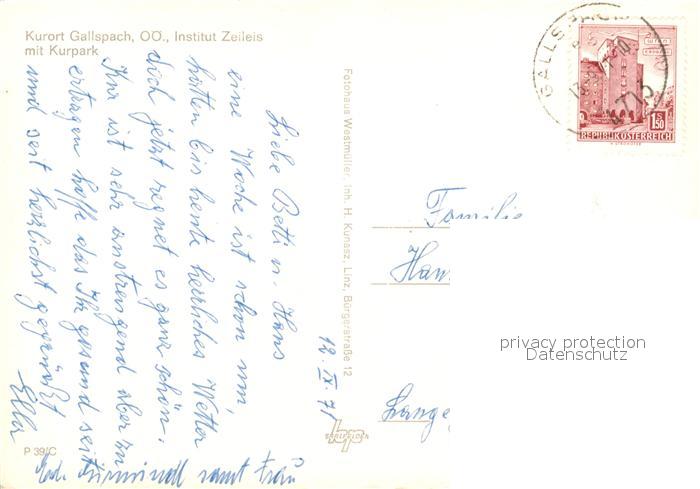 Kurort Gallspach, OÖ., Institut Zeileis
mit Kurpark
Liebe Betti u. Hans
eine Woche ist schon um,
hatten bis heute herrliches Wetter
doch jetzt regnet es ganz schön.
Kur ist sehr anstrengend aber zu
ertragen hoffe das Ihr gesund seit
und seit herzlichst gegrüßt
Ella
samt Frau
P 39/C
Fotohaus Westmüller, Inh. H. Kunasz, Linz, Bürgerstraße 12
12. IX. 71
GALLSPACH
4713
1.50
S
REPUBLIK ÖSTERREICH
Familie
Han
Lange
privacy protection
Datenschutz